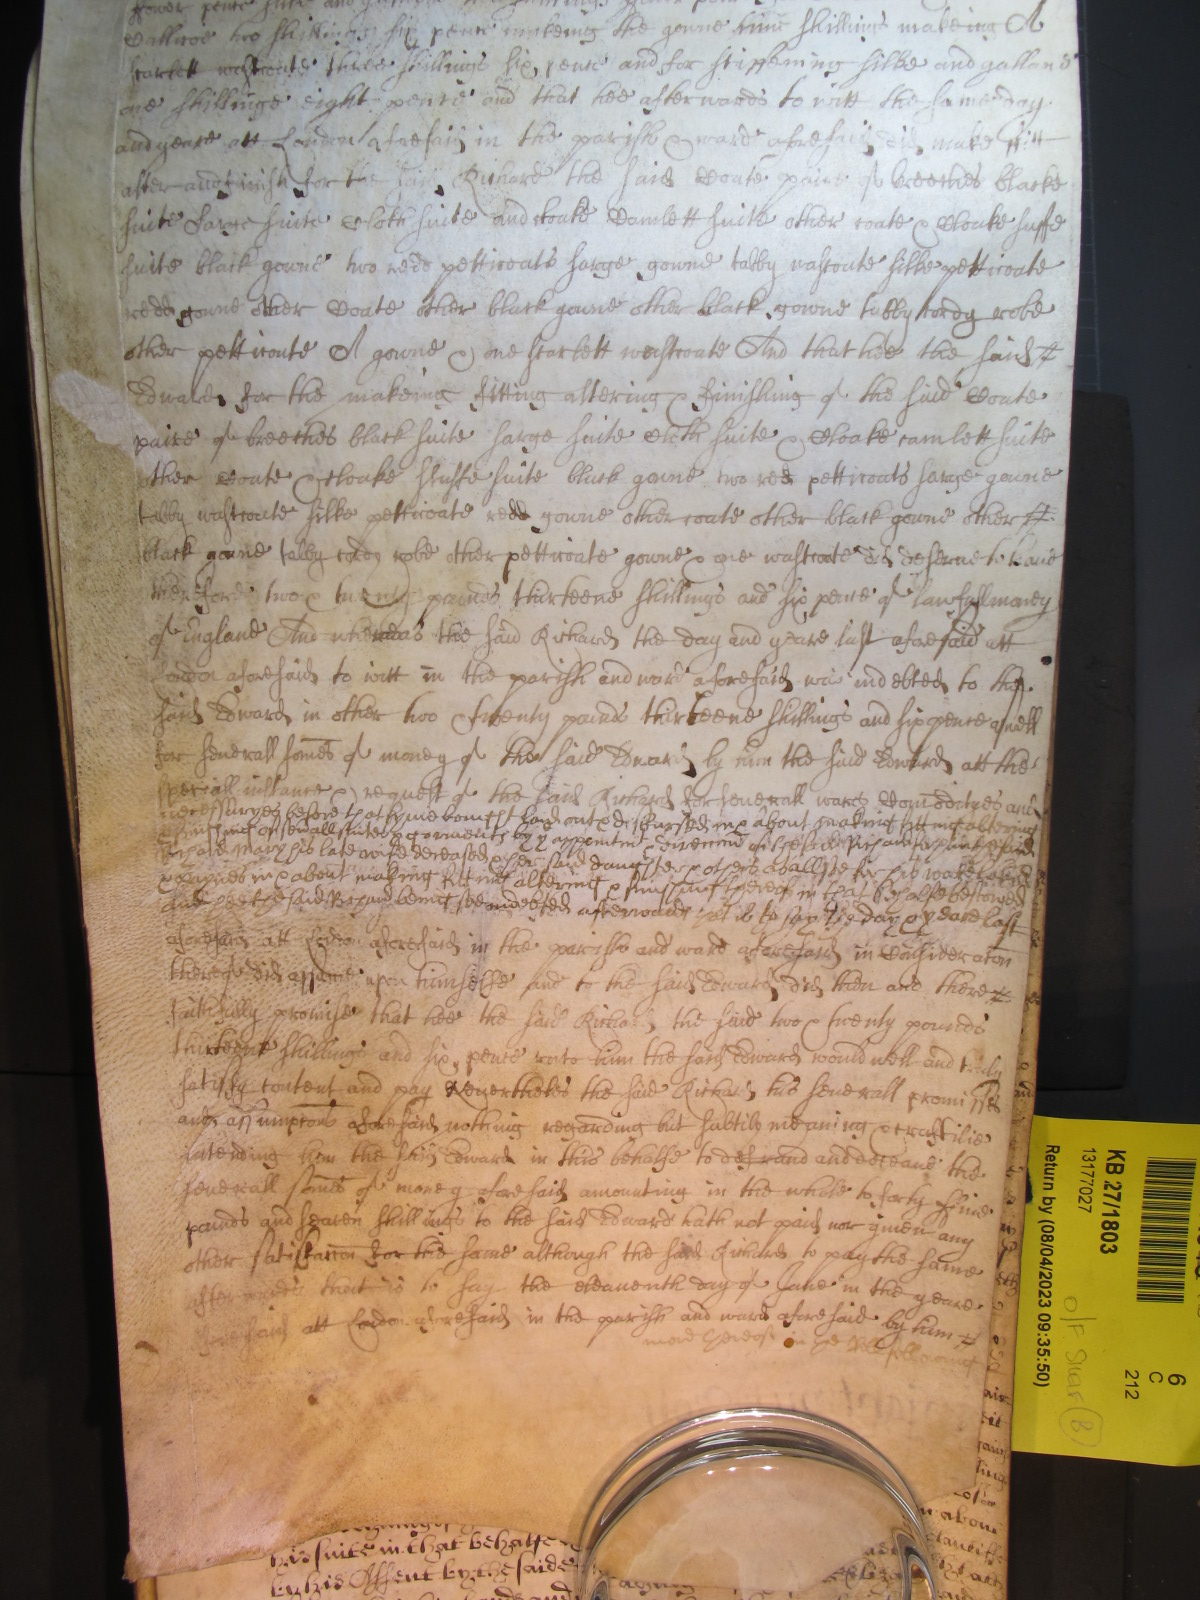 fower pence silke and
two shillings six pence makeing the gowne nine shillings makeing A
scarlett wastcoate three shillings six pence and for stiffening silke and galland
one shillinge eight pence and that hee afterwards to witt the same day
and yeare att London aforesaid in the parish & ward aforesaid did make fitt
alter and finish for the said Richard the said Coate paire of breeches blacke
suite Sarge suite Cloth suite and cloake Camlett suite other coate & Cloake stuffe
suite black gowne two redd petticoats sarge gowne tabby wastcoate silke petticoate
redd gowne other Coate other black gowne other black gowne tabby robe
other petticoate A gowne & one scarlett wastcoate And that hee the said
Edward for the makeing fitting altering & finishing of the said Coate
paire of breeches black suite sarge suite Cloth suite & Cloake camlett suite
other Coate & Cloake stuffe suite black gowne two redd petticoats sarge gowne
tabby wastcoate silke petticoate redd gowne other coate other black gowne other
black gowne tabby robe other petticoate gowne & one wastcoate did deserve to have
therefore two & twenty pounds thirteene shillings and six pence of lawfull money
of England And whereas the said Richard the day and yeare last aforesaid att
London aforesaid to witt in the parish and ward aforesaid was indebted to the
said Edward in other two & twenty pounds thirteene shillings and six pence aswell
for severall somes of money of the said Edward by him the said Edward att the
speciall instance & request of the said Richard for severall wares Comodityes and
necessaryes before that tyme bought laid out & disbursed in & about making fitting altering
& of sevall suites & garments by ye appointmt & direccon of
Mary his late wife deceased & her said daughter & others as allsoe for his worke labour
& paines in & about making fitting altering & finishing thereof in that behalfe bestowed
and hee the said Richard being soe indebted afterwards that is to say the day & yeare last
aforesaid att London aforesaid in the parish and ward aforesaid in Consideracon
thereof did assume upon himselfe and to the said Edward did then and there
faithfully promise that hee the said Richard the said two & twenty pounds
thirteene shillings and six pence unto him the said Edward would well and truly
satisfy content and pay Neverthelesse the said Richard his severall promisses
and assumpcons aforesaid nothing regarding but subtily meaning & craftilie
intending him the said Edward in this behalfe to defraud and deceave the
severall somes of money aforesaid amounting in the whole to forty five
pounds and seaven shillings to the said Edward hath not paid nor given any
other satisfaccon for the same although the said Richard to pay the same
afterwards that is to say the eleaventh day of June in the yeare
aforesaid att London aforesaid in the parish and ward aforesaid by him
more thereof in ye Roll following
his suite in that behalfe
by his Assent by the saide
KB 27/1803
13177027
Return by (08/04/2023 09:35:50)
6
C
212